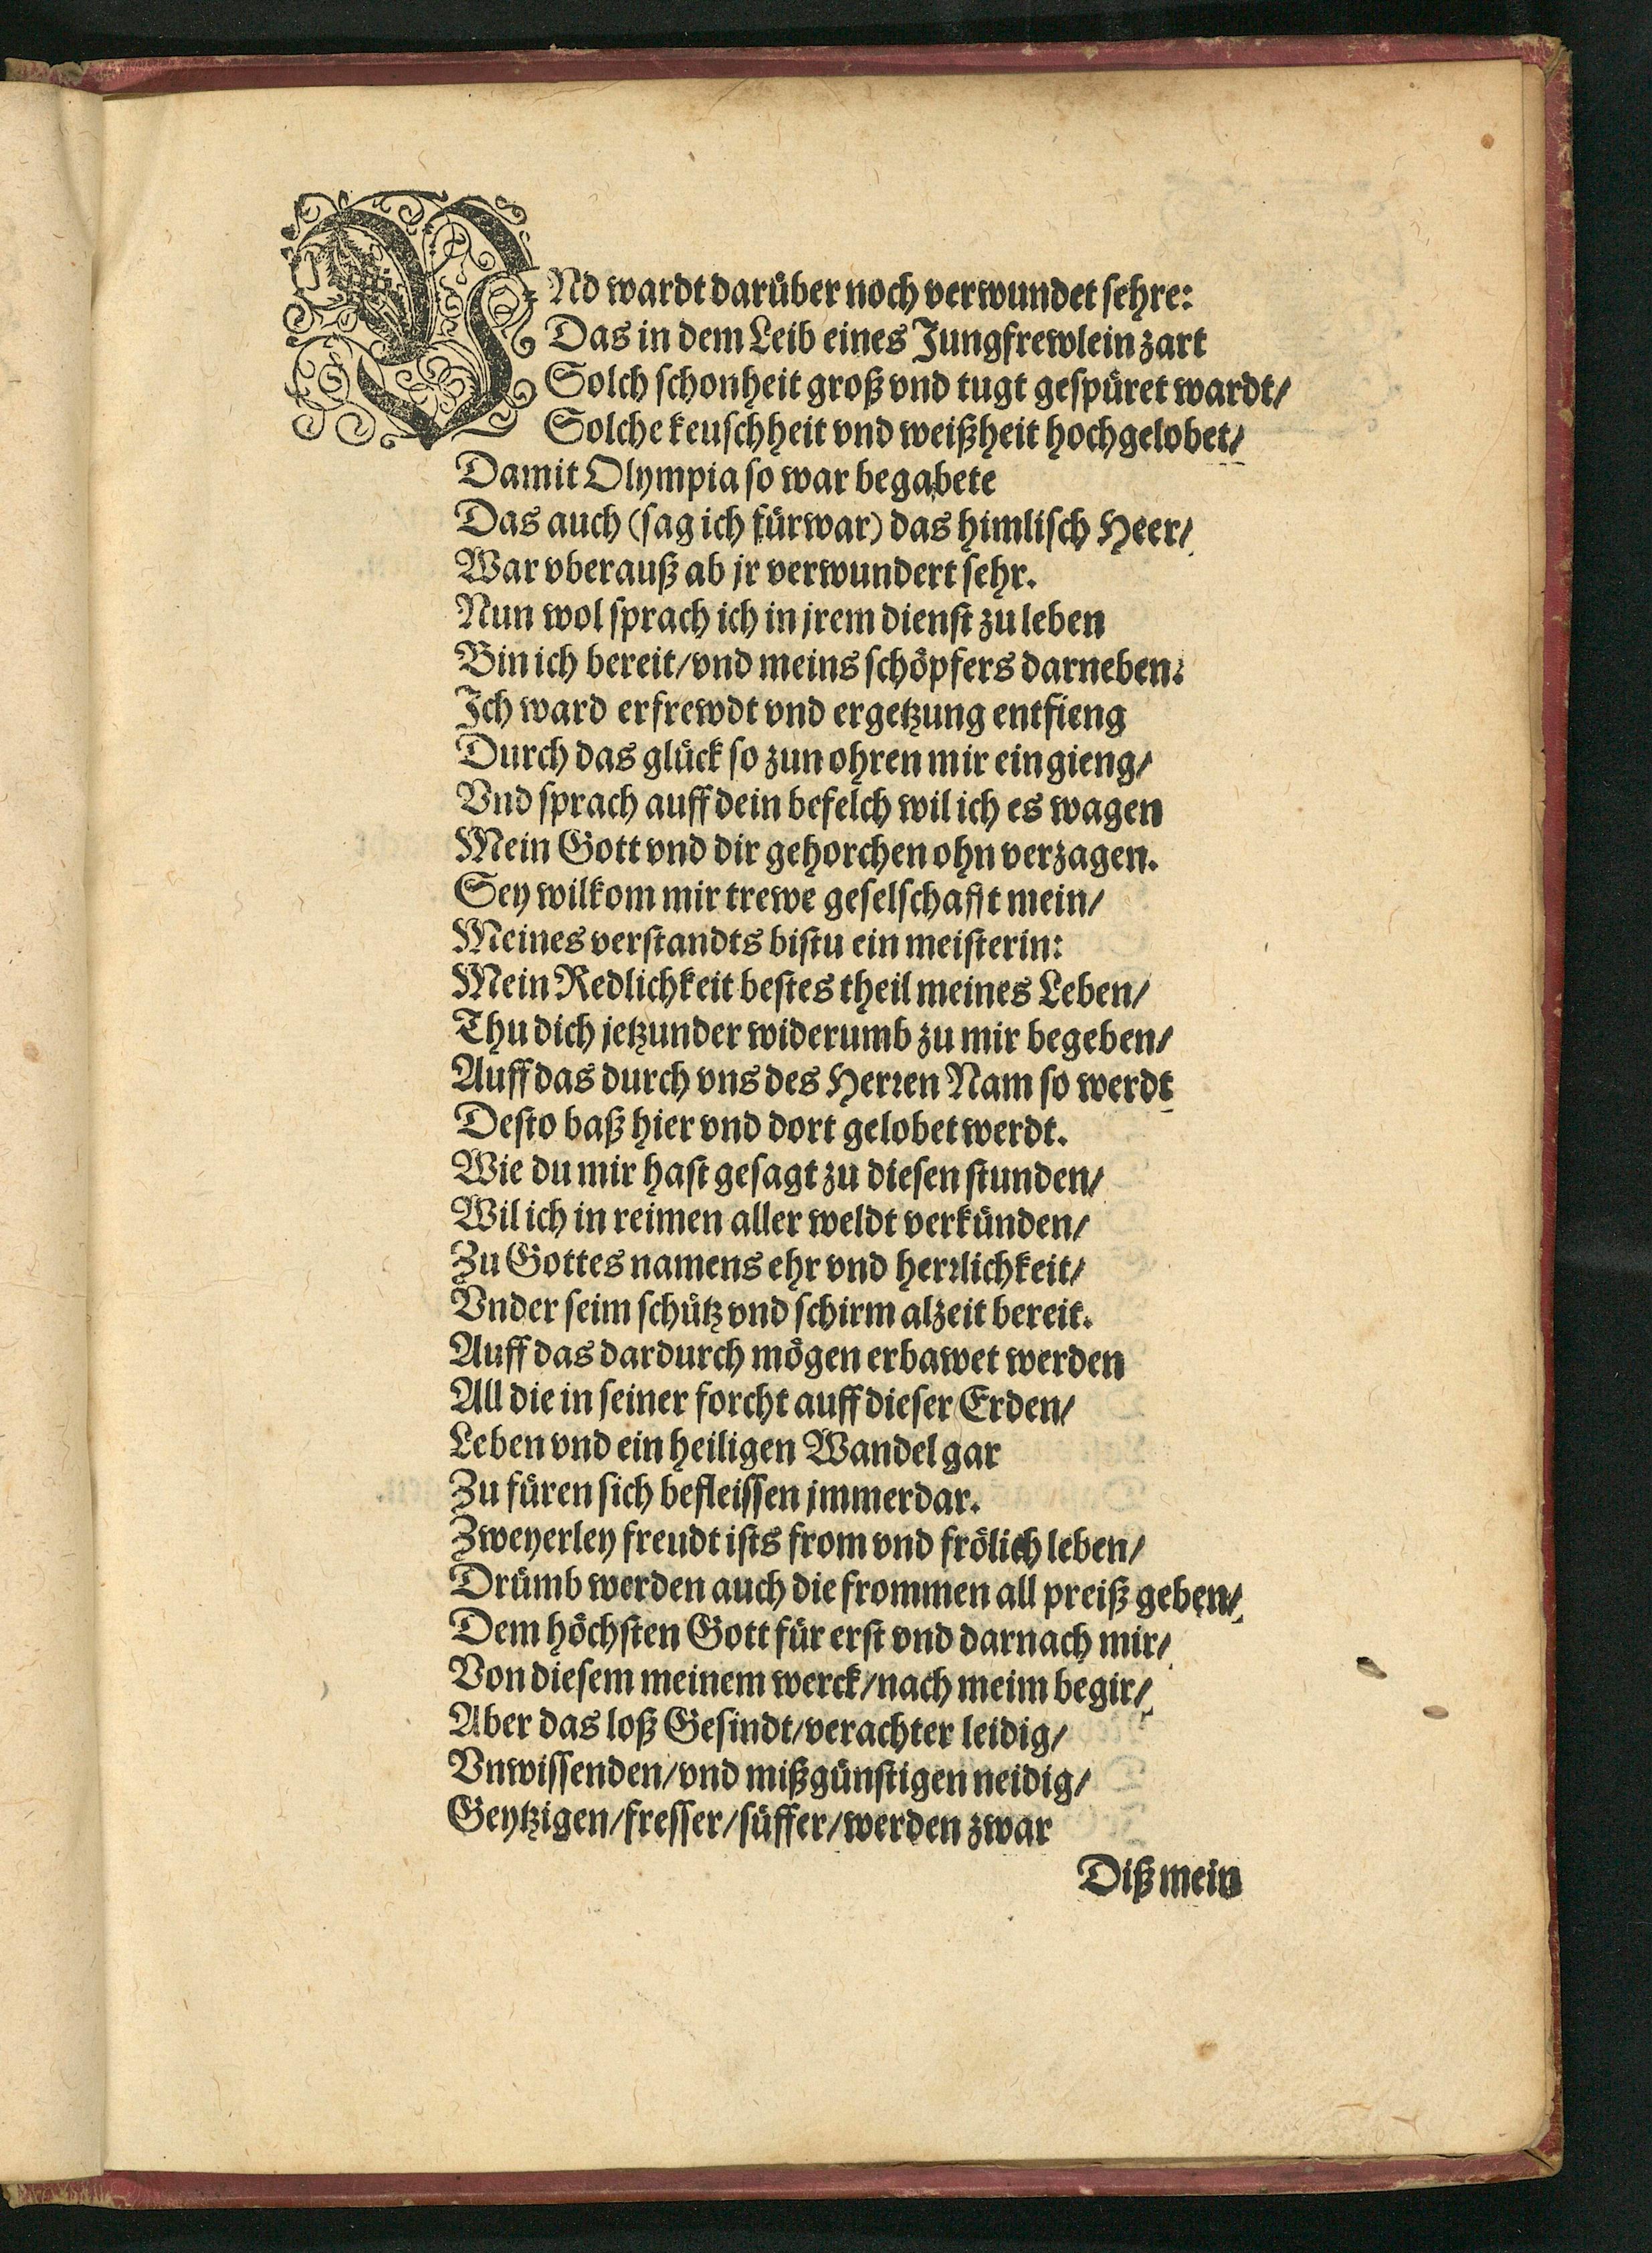 VNd wardt darüber noch verwundet sehre:
Das in dem Leib eines Jungfrewlein zart
Solch schonheit groß vnd tugt gespüret wardt/
Solche keuschheit vnd weißheit hochgelobet/
Damit Olympia so war begabete
Das auch (sag ich fürwar) das himlisch Heer/
War vberauß ab jr verwundert sehr.
Nun wol sprach ich in jrem dienst zu leben
Bin ich bereit/vnd meins schöpfers darneben:
Ich ward erfrewdt vnd ergetzung entfieng
Durch das glück so zun ohren mir eingieng/
Vnd sprach auff dein befelch wil ich es wagen
Mein Gott vnd dir gehorchen ohn verzagen.
Sey wilkom mir trewe geselschafft mein/
Meines verstandts bistu ein meisterin:
Mein Redlichkeit bestes theil meines Leben/
Thu dich jetzunder widerumb zu mir begeben/
Auff das durch vns des Herren Nam so werdt
Desto baß hier vnd dort gelobet werdt.
Wie du mir hast gesagt zu diesen stunden/
Wil ich in reimen aller weldt verkünden/
Zu Gottes namens ehr vnd herrlichkeit/
Vnder seim schütz vnd schirm alzeit bereit.
Auff das dardurch mögen erbawet werden
All die in seiner forcht auff dieser Erden/
Leben vnd ein heiligen Wandel gar
Zu füren sich befleissen jmmerdar.
Zweyerley freudt ists from vnd frölich leben/
Drümb werden auch die frommen all preiß geben/
Dem höchsten Gott für erst vnd darnach mir/
Von diesem meinem werck/nach meim begir/
Aber das loß Gesindt/verachter leidig/
Vnwissenden/vnd mißgünstigen neidig/
Geytzigen/fresser/süffer/werden zwar
Diß mein